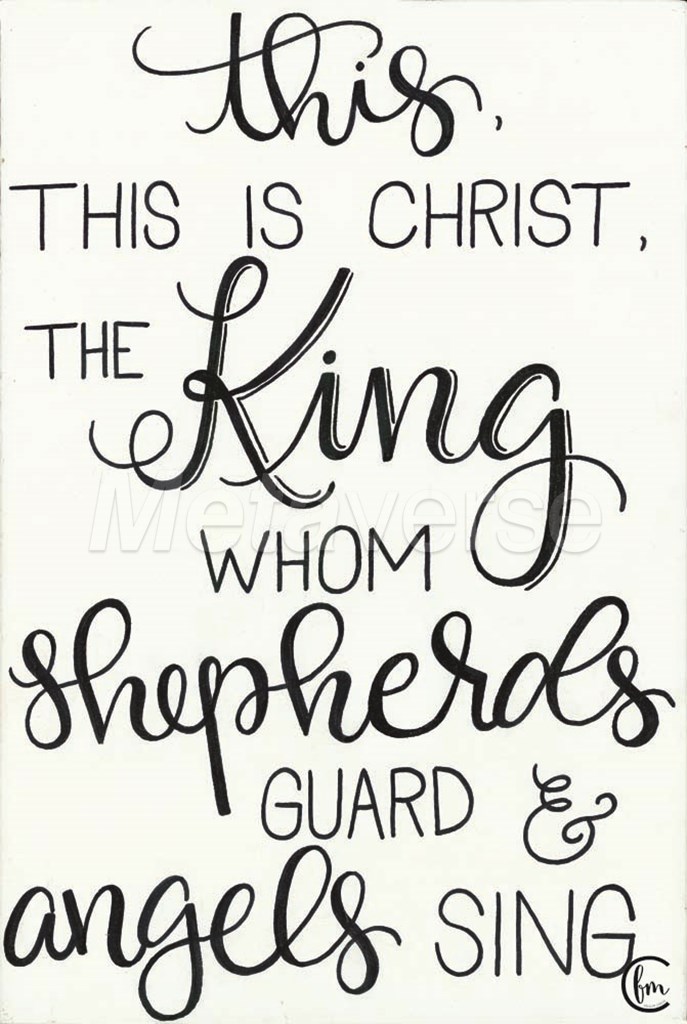 this,
THIS IS CHRIST,
THE King
Metaverse
WHOM
shepherds
GUARD &
angels SING
fbm